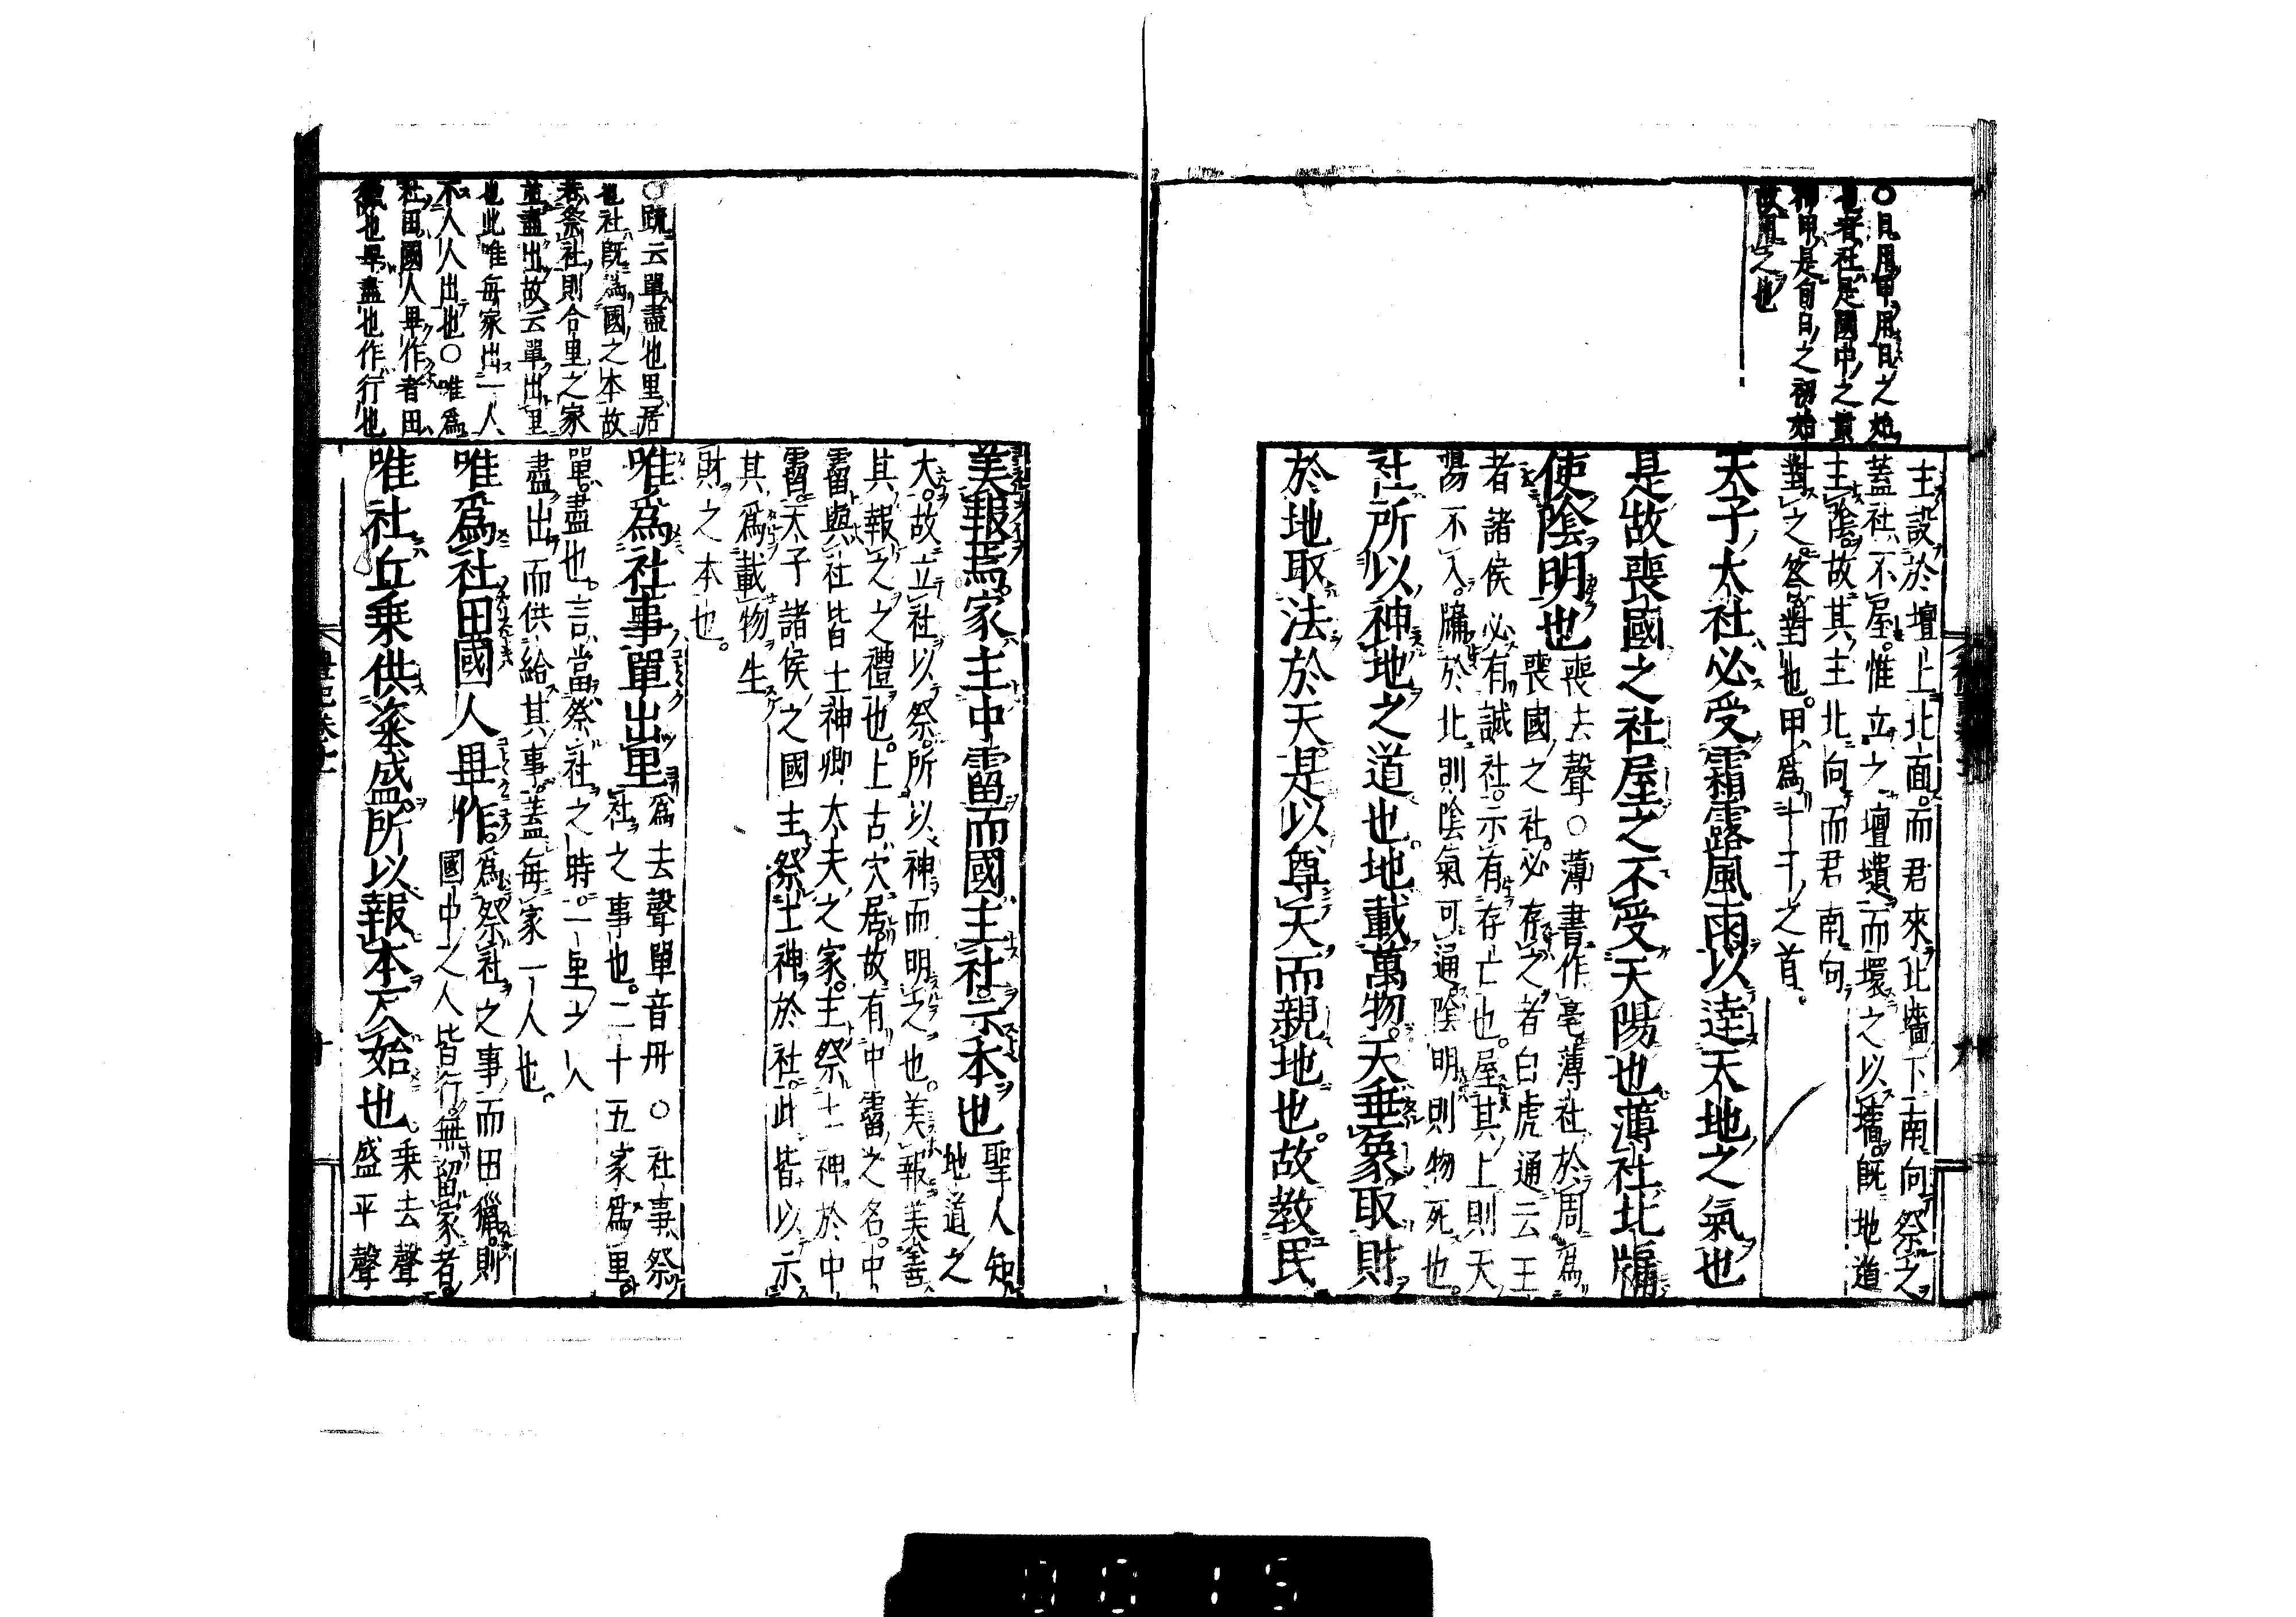 ○日用甲用日之始
也者社是國中之貴
神甲是旬日之初始
故用之也
主設於壇上北面而君來北墻下南向祭之
蓋社不屋惟立之壇壝而環之以墻既地道
主陰故其主北向而君南向
對之答對也甲爲十干之首
天子大社必受霜露風雨以達天地之氣也
是故喪國之社屋之不受天陽也薄社北牖
使陰明也
喪去聲○薄書作亳薄社於周爲
喪國之社必存之者白虎通云王
者諸侯必有誡社示有存亡也屋其上則天
陽不入牖於北則陰氣可通陰明則物死也
社所以神地之道也地載萬物天垂象取財
於地取法於天是以尊天而親地也故教民
美報焉家主中霤而國主社示本也
聖人知
地道之
大故立社以祭所以神而明之也美報美善
其報之之禮也上古穴居故有中霤之名中
霤與社皆土神卿大夫之家主祭土神於中
霤天子諸侯之國主祭土神於社此皆以示
其爲載物生
財之本也
○疏云單盡也里居
也社既爲國之本故
若祭社則合里之家
並盡出故云單出里
也此唯每家出一人
不人人出也○唯爲
社田國人畢作者田
獵也畢盡也作行也
唯爲社事單出里
爲去聲單音丹○社事祭
社之事也二十五家爲里
單盡也言當祭社之時一里之人
盡出而供給其事蓋每家一人也
唯爲社田國人畢作
爲祭社之事而田獵則
國中之人皆行無留家者
唯社丘乗供粢盛所以報本反始也
乗去聲
盛平聲